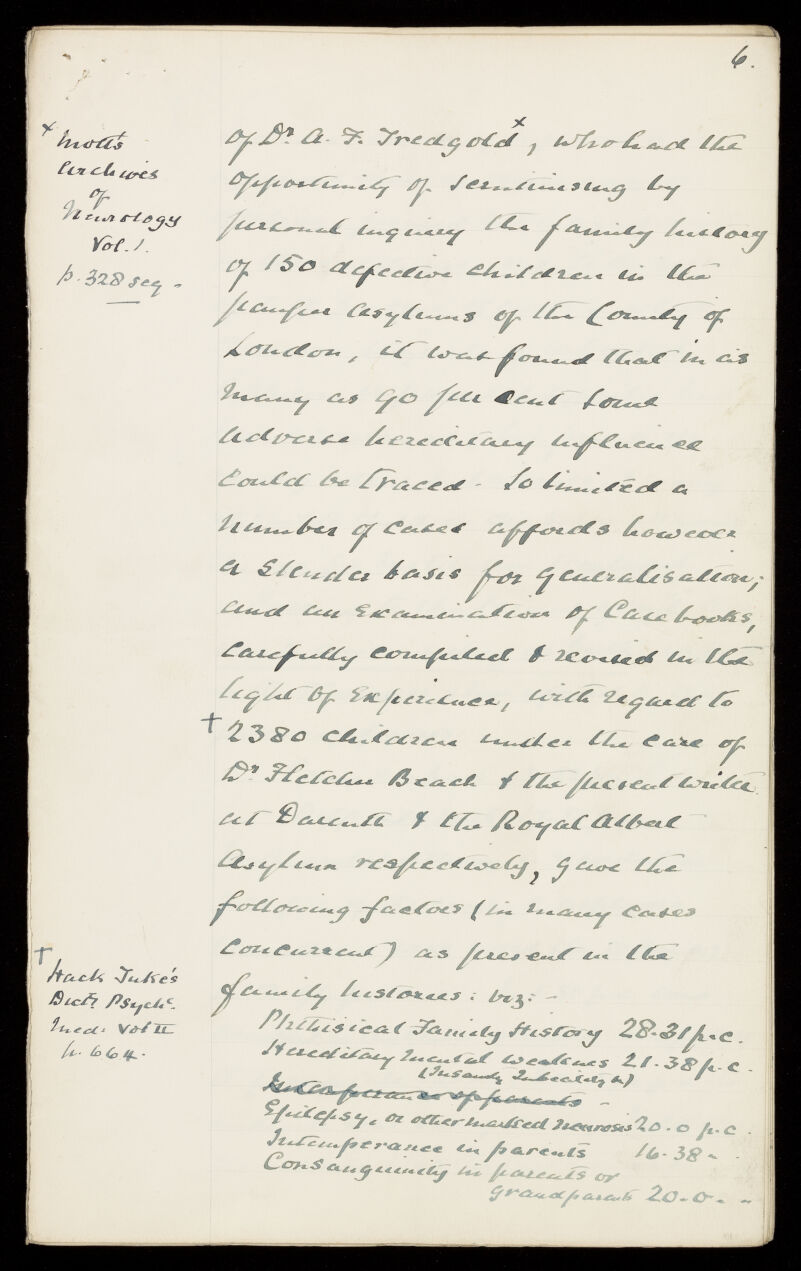 6.
x Mott's
Archives
of
Neurology
Vol. 1.
p. 328 seq.
of Dr. A. F. Tredgold x, who had the
opportunity of scrutinising by
personal inquiry the family history
of 150 defective children in the
pauper asylums of the County of
London, it was found that in as
many as 90 per cent some
adverse hereditary influence
could be traced. So limited a
number of cases affords however
a slender basis for generalisation;
and an examination of Case books,
carefully compiled & revised in the
light of experience, with regard to
† 2380 children under the care of
Dr. Fletcher Beach & the present writer
at Darenth & the Royal Albert
Asylum respectively, gave the
following factors (in many cases
concurrent) as present in the
family histories: viz: -
† Hack Tuke's
Dict. Psych.
Med. Vol II
p. 664.
Phthisical Family History 28.31 p.c.
Hereditary Mental Weakness 21.38 p.c.
(Insanity Imbecility &)
Intemperance of parents
Epilepsy, or other marked neurosis 20.0 p.c.
Intemperance in parents 16.38 "
Consanguinity in parents or
grandparents 20.0. "